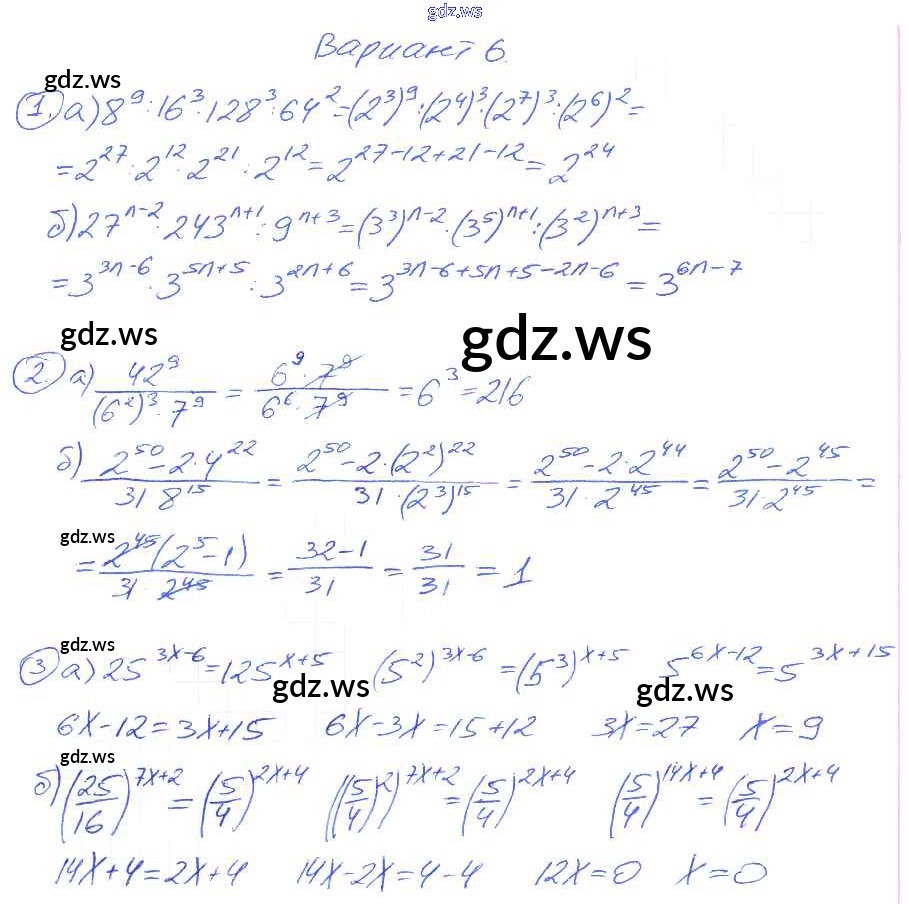 gdz.ws
Вариант 6.
gdz.ws
1. а) 8^9 : 16^3 · 128^3 : 64^2 = (2^3)^9 : (2^4)^3 · (2^7)^3 : (2^6)^2 =
= 2^27 · 2^12 · 2^21 : 2^12 = 2^(27-12+21-12) = 2^24
б) 27^(n-2) · 243^(n+1) : 9^(n+3) = (3^3)^(n-2) · (3^5)^(n+1) : (3^2)^(n+3) =
= 3^(3n-6) · 3^(5n+5) : 3^(2n+6) = 3^(3n-6+5n+5-2n-6) = 3^(6n-7)
gdz.ws
gdz.ws
2 а) 42^9 / ((6^2)^3 · 7^9) = (6^9 · 7^9) / (6^6 · 7^9) = 6^3 = 216
б) (2^50 - 2·4^22) / (31 8^15) = (2^50 - 2·(2^2)^22) / (31 · (2^3)^15) = (2^50 - 2·2^44) / (31 · 2^45) = (2^50 - 2^45) / (31·2^45) =
gdz.ws
= 2^45(2^5 - 1) / (31 · 2^45) = (32-1) / 31 = 31/31 = 1
gdz.ws
3 а) 25^(3x-6) = 125^(x+5) (5^2)^(3x-6) = (5^3)^(x+5) 5^(6x-12) = 5^(3x+15)
gdz.ws
gdz.ws
6x-12=3x+15 6x-3x=15+12 3x=27 x=9
gdz.ws
б) (25/16)^(7x+2) = (5/4)^(2x+4) ((5/4)^2)^(7x+2) = (5/4)^(2x+4) (5/4)^(14x+4) = (5/4)^(2x+4)
14x+4=2x+4 14x-2x=4-4 12x=0 x=0